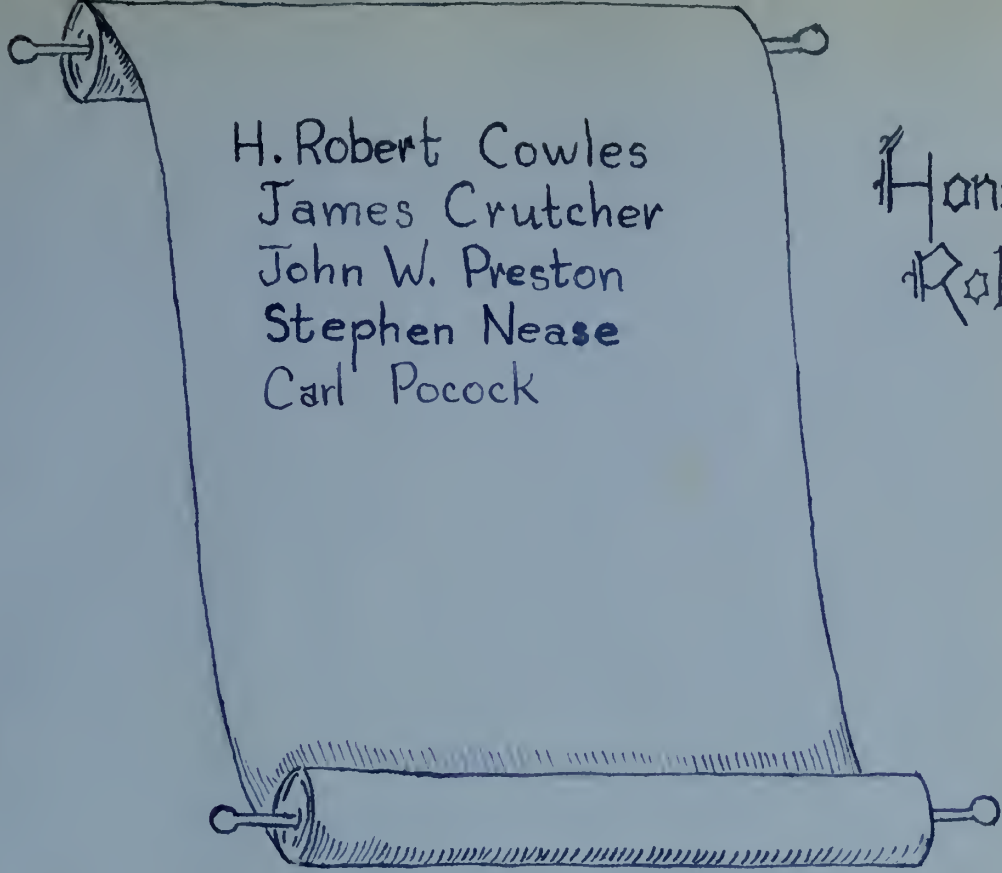 H. Robert Cowles
James Crutcher
John W. Preston
Stephen Nease
Carl Pocock